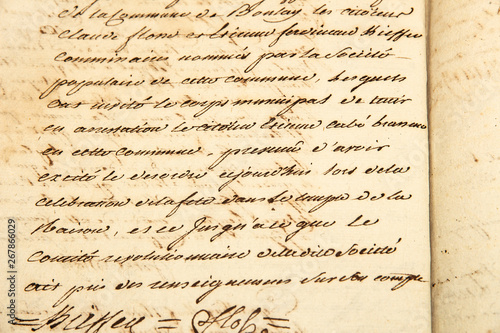 de la Commune de Boulay les citoiens
Claude flone et Etienne ferdinand Kieffer
Commissaires nommés par la Société
populaire de cette commune, lesquels
ont invité le corps municipal de tenir
en arrestation le citoien Etienne cabé
en cette commune, prévenu d'avoir
excité le desordre aujourd'hui lors de la
celebration de la fete dans le temple de la
Raison, et ce jusqu'à ce que le
Comité revolutionnaire de ladite Société
ait pris des renseignemens sur son compte
Adobe Stock
#267866029